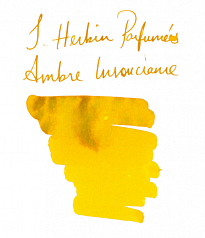 J. Herbin Parfumées
Ambre Insouciance